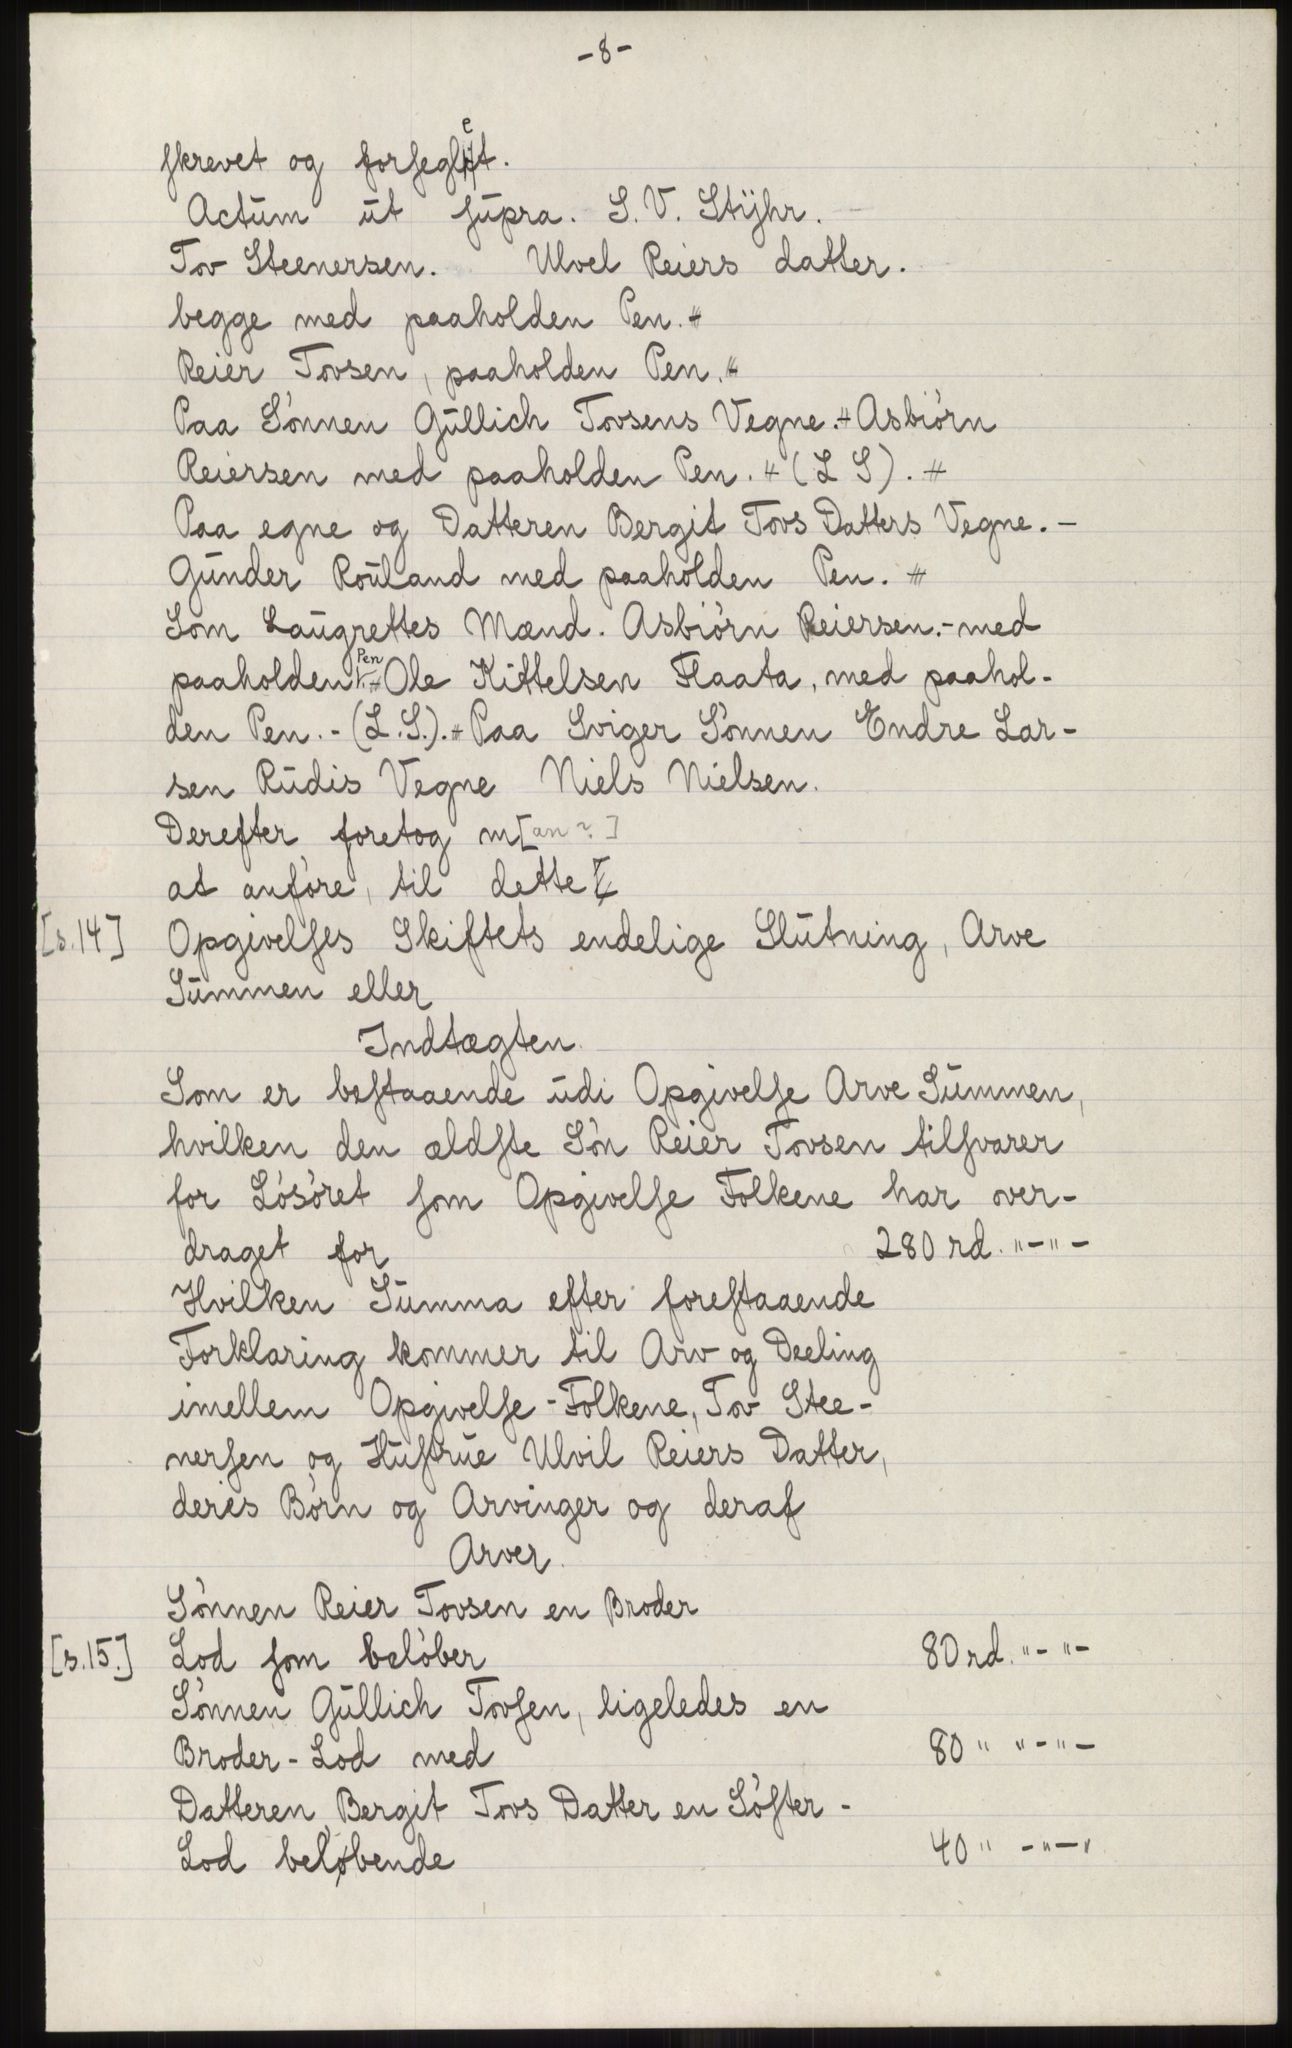 -8-
skrevet og forseglet.
Actum ut supra. S. V. Stijhr.
Tov Steenersen. Ulvel Reiers datter.
begge med paaholden Pen.#
Reier Tovsen, paaholden Pen.#
Paa Sønnen Gullich Tovsens Vegne.# Asbiørn
Reiersen med paaholden Pen. # (L S). #
Paa egne og Datteren Bergit Tovs Datters Vegne. -
Gunder Rouland med paaholden Pen. #
Som Laugrettes Mænd. Asbiørn Reiersen.- med
paaholden Pen # Ole Kittelsen Flaata, med paahol-
den Pen. - (L.S.).# Paa Sviger Sønnen Endre Lar-
sen Rudis Vegne Niels Nielsen.
Derefter foretog m[an ?]
at anføre, til dette
[s.14] Opgivelses Skiftets endelige Slutning, Arve
Summen eller
Indtægten.
Som er bestaaende udi Opgivelse Arve Summen,
hvilken den ældste Søn Reier Tovsen tilsvarer
for Løsøret som Opgivelse Folkene har over-
draget for 280 rd. "-"-
Hvilken Summa efter forestaaende
Forklaring kommer til Arv og Deeling
imellem Opgivelse-Folkene, Tov Stee-
nersen og Hustrue Ulvil Reiers Datter,
deres Børn og Arvinger og deraf
Arver.
Sønnen Reier Tovsen en Broder
[s.15.] Lod som beløber 80 rd. "- "-
Sønnen Gullich Tovsen, ligeledes en
Broder-Lod med 80 " "-"-
Datteren Bergit Tovs Datter en Søster-
Lod beløbende 40 " -"-"